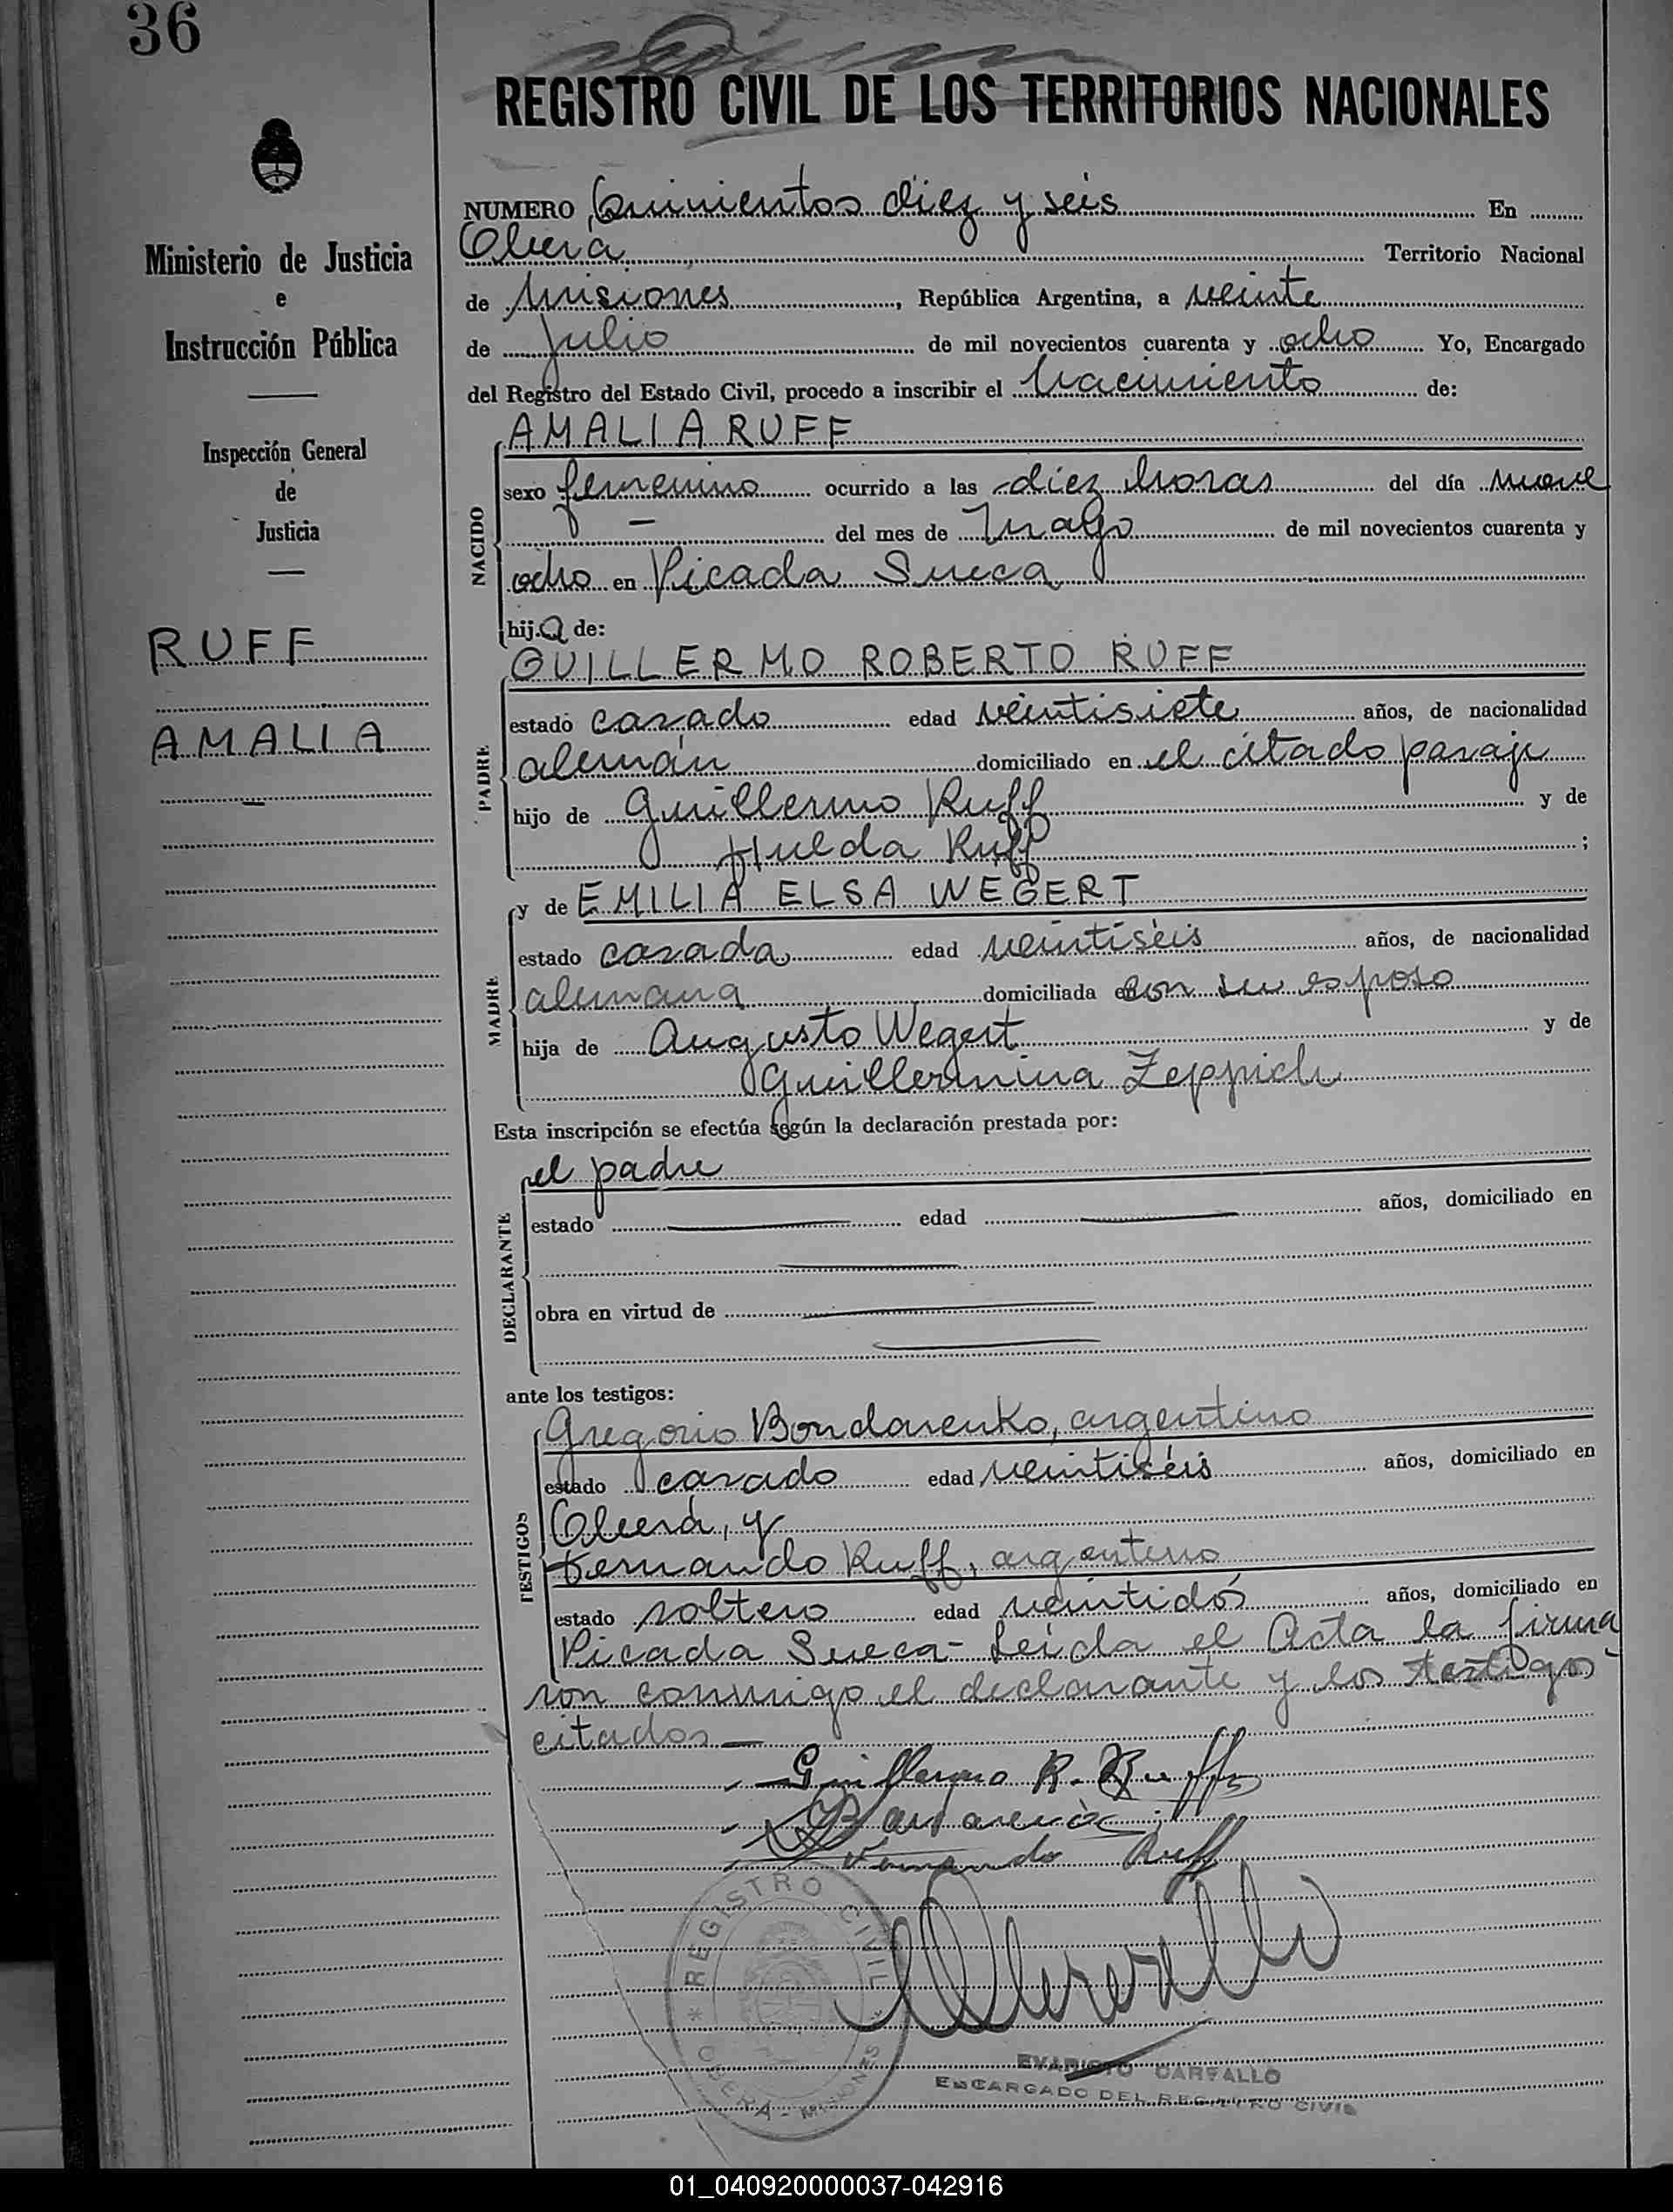 36
REGISTRO CIVIL DE LOS TERRITORIOS NACIONALES
Ministerio de Justicia
e
Instrucción Pública
Inspección General
de
Justicia
RUFF
AMALIA
NUMERO Quinientos diez y seis En
Oberá Territorio Nacional
de Misiones, República Argentina, a veinte
de Julio de mil novecientos cuarenta y ocho Yo, Encargado
del Registro del Estado Civil, procedo a inscribir el Nacimiento de:
NACIDO
AMALIA RUFF
sexo femenino ocurrido a las diez horas del día nueve
— del mes de Mayo de mil novecientos cuarenta y
ocho en Picada Sueca
hija de:
PADRE
GUILLERMO ROBERTO RUFF
estado casado edad veintisiete años, de nacionalidad
alemán domiciliado en el citado paraje
hijo de Guillermo Ruff y de
Hulda Ruff ;
MADRE
y de EMILIA ELSA WEGERT
estado casada edad veintiséis años, de nacionalidad
alemana domiciliada en con su esposo
hija de Augusto Wegert y de
Guillermina Zeppich
Esta inscripción se efectúa según la declaración prestada por:
DECLARANTE
el padre
estado edad años, domiciliado en
obra en virtud de
ante los testigos:
TESTIGOS
Gregorio Bondarenko, argentino
estado casado edad veintiséis años, domiciliado en
Oberá, y
Fernando Ruff, argentino
estado soltero edad veintidós años, domiciliado en
Picada Sueca- Leída el Acta la firma
ron conmigo el declarante y los testigos
citados —
Guillermo R. Ruff
Fernando Ruff
REGISTRO CIVIL
OBERA - MISIONES
EVARISTO CARVALLO
ENCARGADO DEL REGISTRO CIVIL
01_040920000037-042916